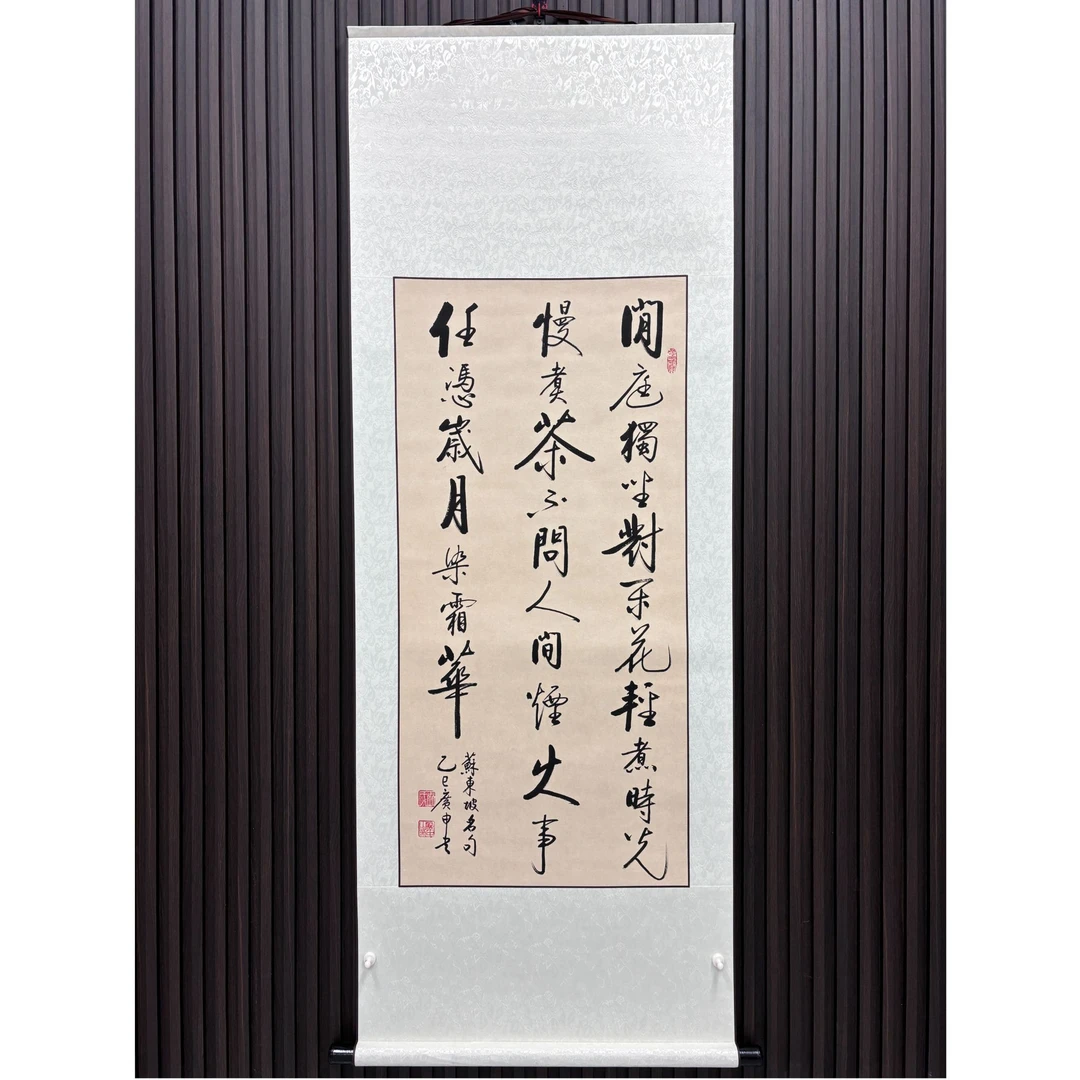 閒庭獨坐對閑花輕煮時光
慢煮茶不問人間煙火事
任憑歲月染霜華
蘇東坡名句
乙巳廣申书